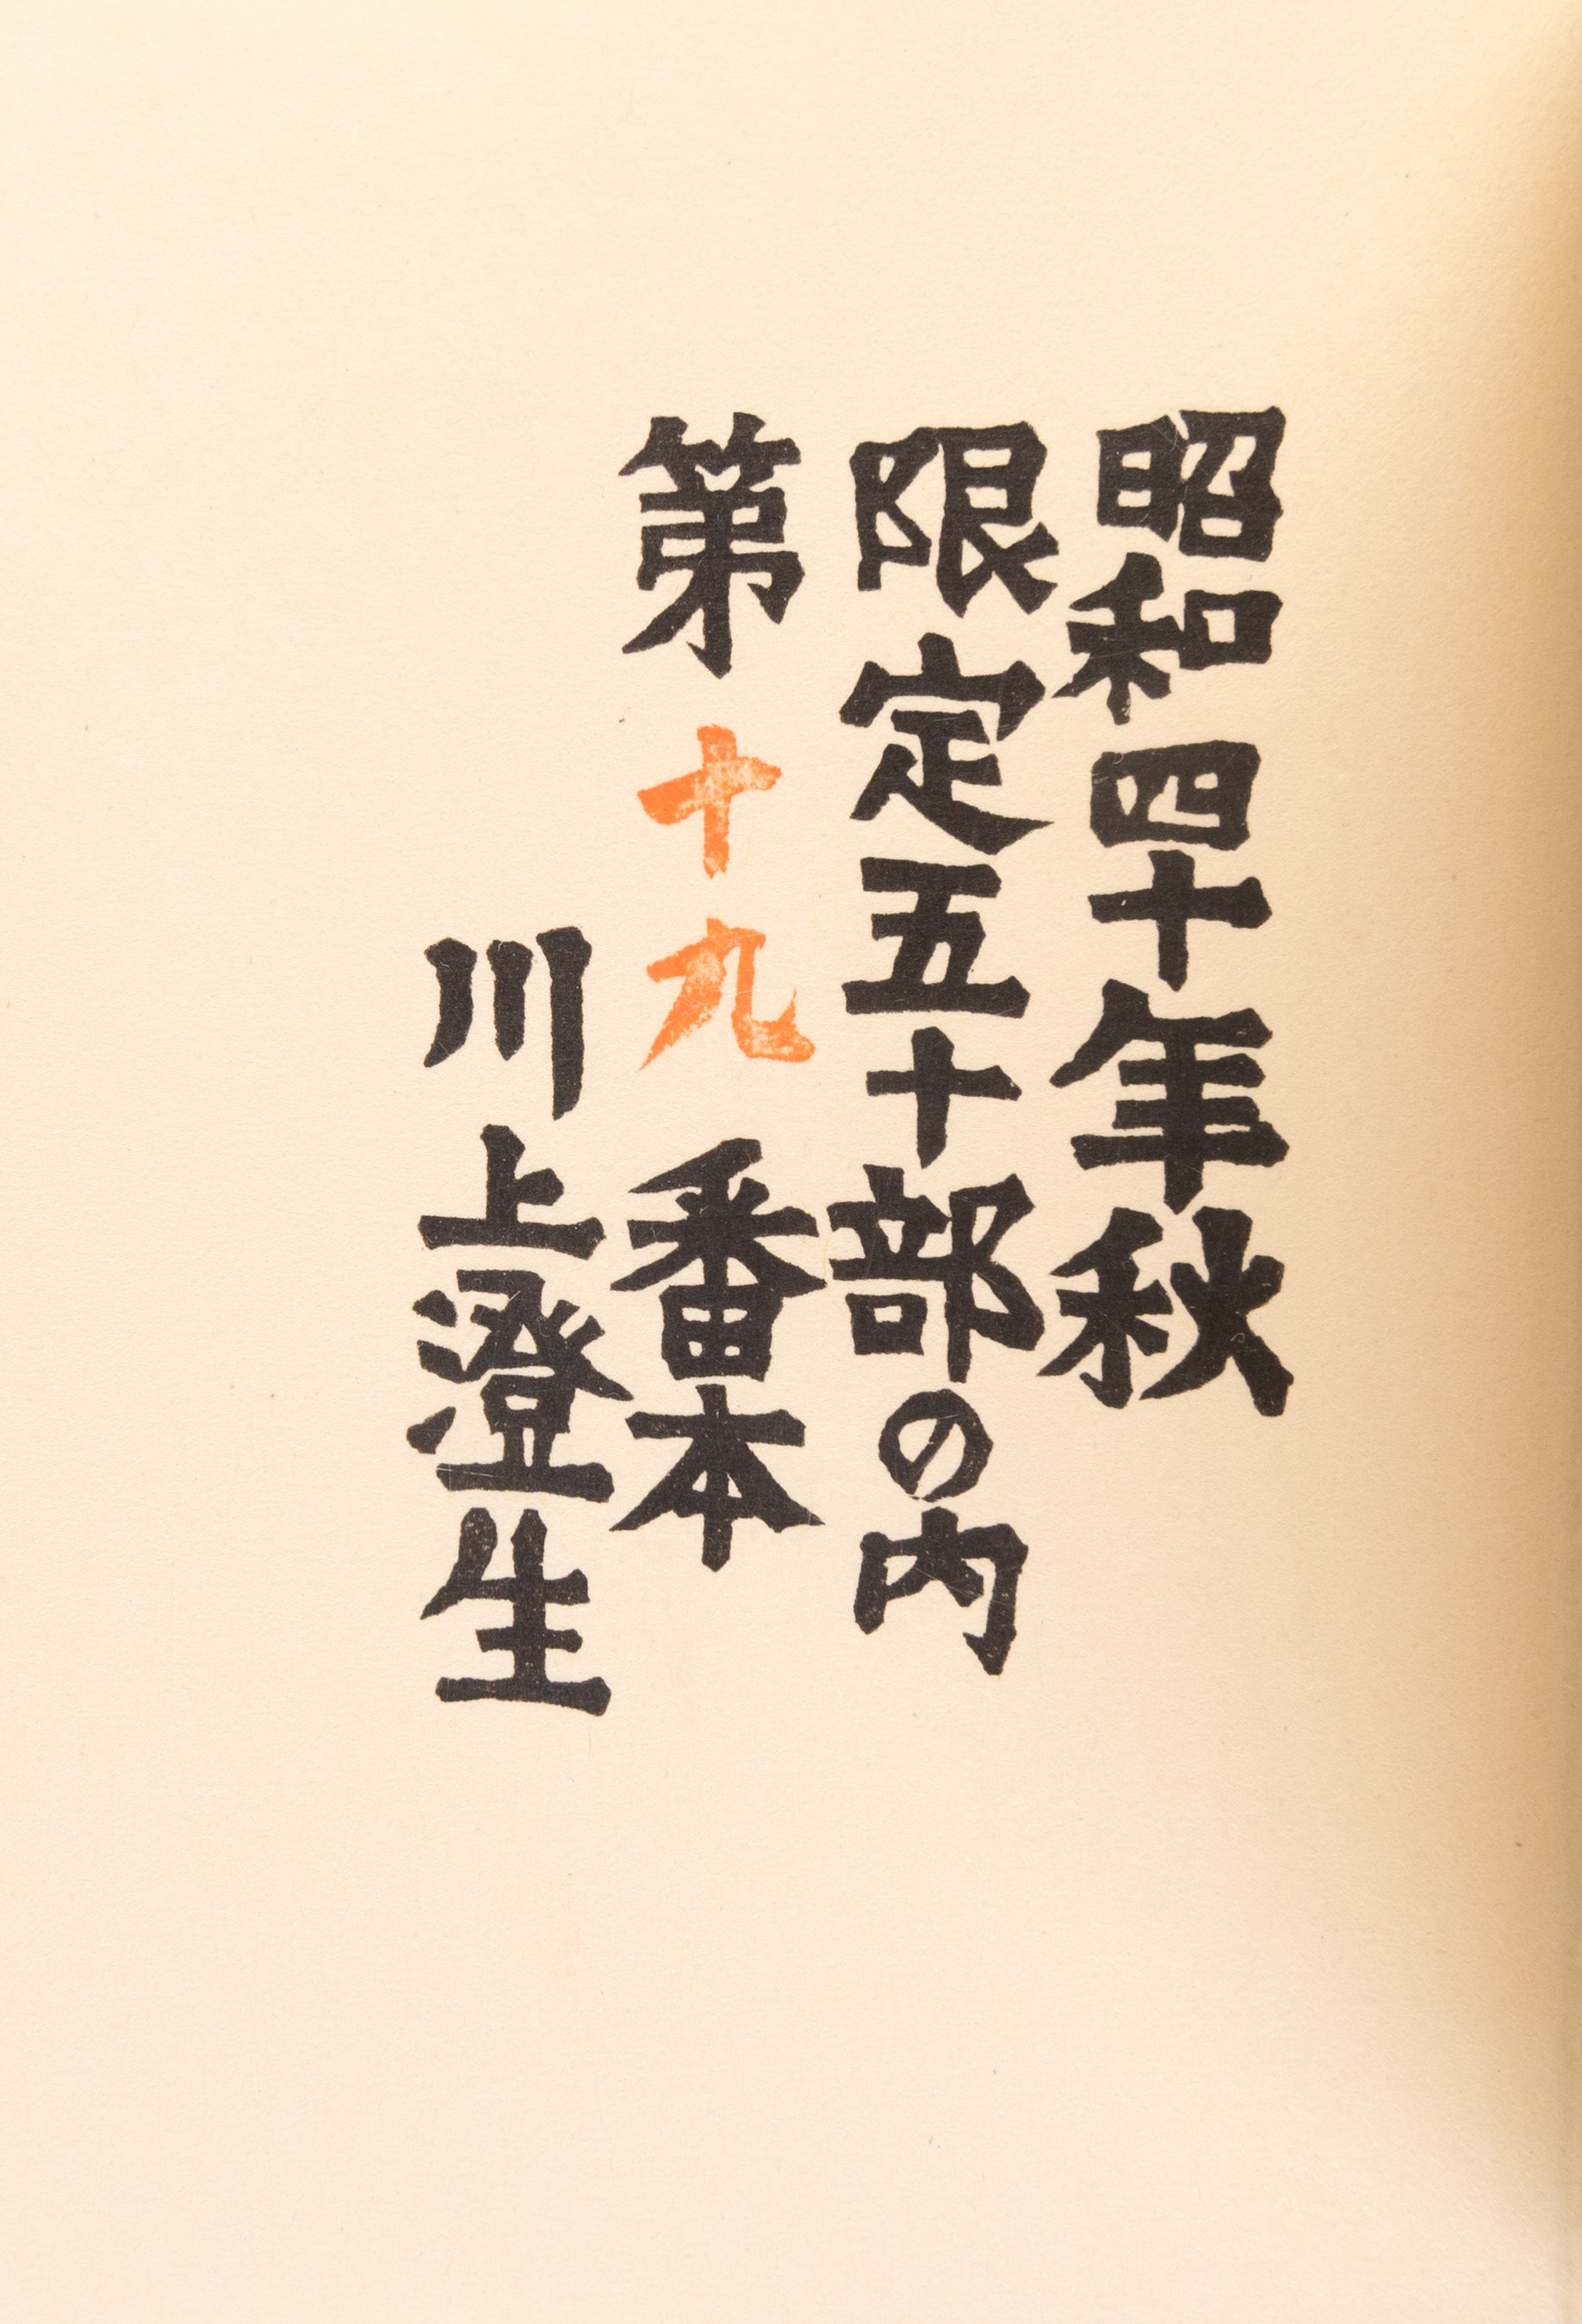 昭和四十年秋
限定五十部の内
第十九番本
川上澄生